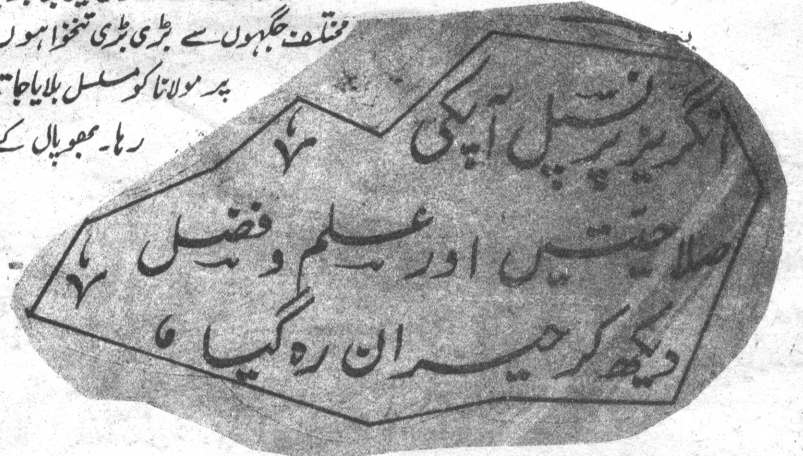 مختلف جگہوں سے بڑی بڑی تنخواہوں
پر مولانا کو مسلسل بلایا جاتا
رہا۔ بھوپال کے
انگریز پرنسپل آپکی
صلاحیتیں اور علم و فضل
دیکھ کر حیران رہ گیا